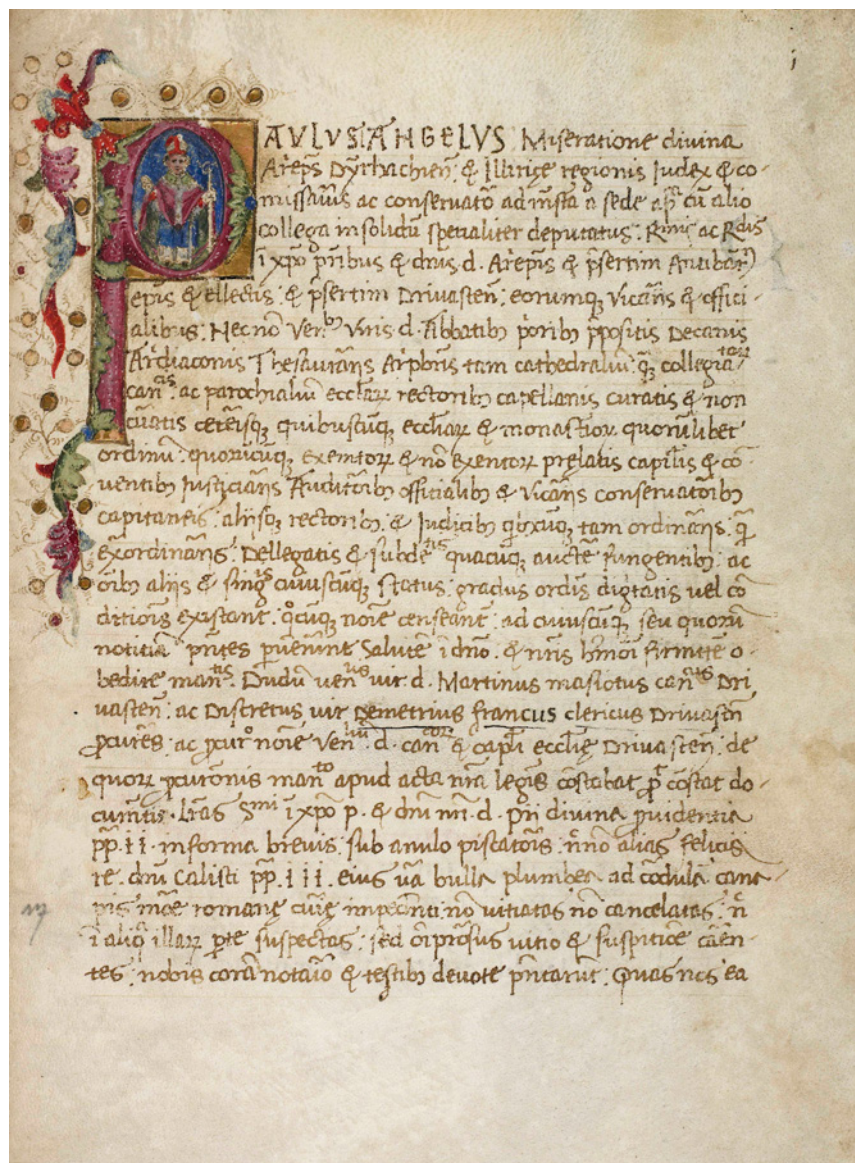 i
PAULUS ANGELUS Miseratione divina
Ar̄ep̄s Dyrhachieñ: & Illirice regionis Iudex & co-
missarius ac conservatō ad infr̄a a sede ap̄ cū alio
collega in solidū spetialiter deputatus: R̄mis ac R̄dis
ī xp̄o pr̄ibus & dn̄is .d. Ar̄ep̄is & p̄sertim Antibar̄
ep̄is & ellectis: & p̄sertim Drivasteñ: eorumq; vicariis & offici-
alibus: Nec nō Ven bus Viris .d. Abbatib; p̄orib; p̄positis Decanis
Ardiaconis Thesaurariis Arp̄bris tam cathedraliū q̄; collegia
cañ: ac parochialiū eccl̄ar̄ rectorib; capellanis curatis & non
curatis ceterisq; quibuscūq; eccl̄ar̄ & monastior̄ quorūlibet
ordinū: quorūcūq; exemtor̄ & nō exentor̄ prelatis capl̄is & cō-
ventib; Iusticiariis Auditorib; officialib; & vicariis conservatorib;
capitaneis: aliisq; rectorib; & Iudicib; tam ordinariis: q̄
exordinariis: Dellegatis & subde tis quacūq; aucte fungentib: ac
ōib; aliis & sing̃ cuiuscūq; status: gradus ordis digtatis vel cō
ditiōis existant: q̄cūq; noīe censeant: ad cuiuscūq; seu quorū
notitiā pn̄tes pervenerint Salutē ī dn̄o. & nr̄is hm̄oi firmitē o-
bedire man tis. Dudū ven lis vir .d. Martinus masiotus cañ us Dri
vasteñ: ac Discretus vir Demetrius francus clericus Drivasteñ
p̄cures: ac p̄cur̄ noīe Ven liū .d. cañ cor & capl̄i eccl̄ie Drivasteñ: de
quor̄ p̄curōnis man to apud acta nr̄a legīs cōstabat p̄ cōstat do-
cumētis. Lr̄as S mi ī xp̄o p. & dn̄i nr̄i .d. pii divina p̄videntia
pp̄. i i. in forma brevis: sub anulo piscatōis: n̄no alias felicis
re. dn̄i Calisti pp̄. i i i. eius v̄a bulla plumbea ad codulā cana-
pis mōe romane curie impēdenti: nō vitiatas nō cancelatas: n̄
ī aliq̄ illar̄ p̄te suspectas: sed oī prōsus vitio & suspitiōe cāen-
tes: nobis corā notaio & testib; devote pn̄tarūt: Quas nos ea